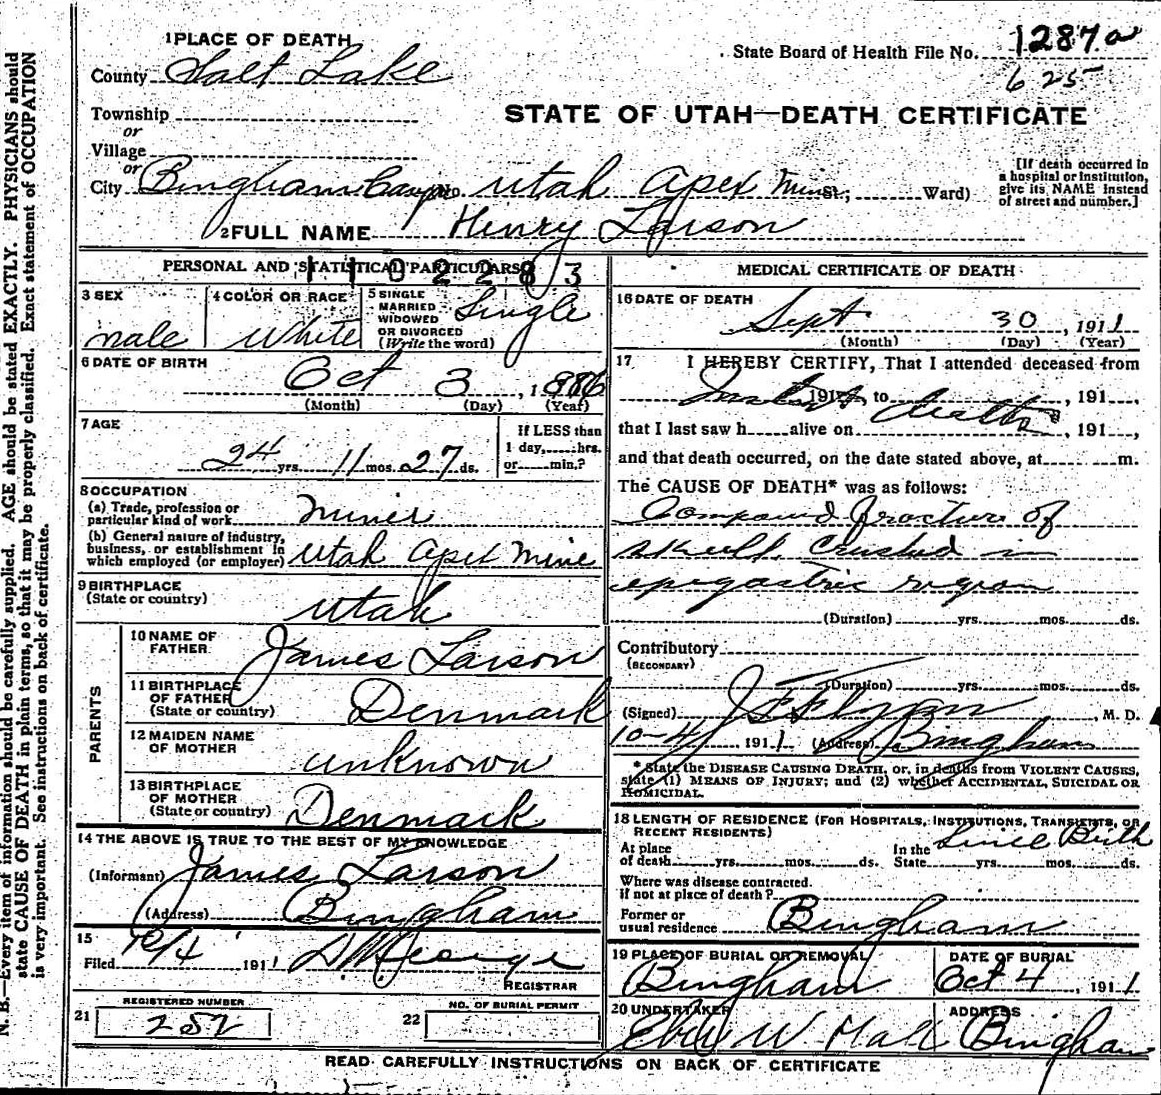 N. B.—Every item of information should be carefully supplied. AGE should be stated EXACTLY. PHYSICIANS should
state CAUSE OF DEATH in plain terms, so that it may be properly classified. Exact statement of OCCUPATION
is very important. See instructions on back of certificate.
1 PLACE OF DEATH
State Board of Health File No. 1287a
625
County Salt Lake
STATE OF UTAH—DEATH CERTIFICATE
Township
or
Village
or
City Bingham Canyon No. Utah Apex Mine St.; Ward)
[If death occurred in
a hospital or institution,
give its NAME instead
of street and number.]
2 FULL NAME Henry Larson
PERSONAL AND STATISTICAL PARTICULARS
1102283
3 SEX
male
4 COLOR OR RACE
White
5 SINGLE
MARRIED
WIDOWED
OR DIVORCED
(Write the word)
Single
6 DATE OF BIRTH
Oct 3, 1886
(Month) (Day) (Year)
7 AGE
24 yrs. 11 mos. 27 ds.
If LESS than
1 day, hrs.
or min.?
8 OCCUPATION
(a) Trade, profession or
particular kind of work Miner
(b) General nature of industry,
business, or establishment in
which employed (or employer) Utah Apex Mine
9 BIRTHPLACE
(State or country)
Utah
PARENTS
10 NAME OF
FATHER
James Larson
11 BIRTHPLACE
OF FATHER
(State or country)
Denmark
12 MAIDEN NAME
OF MOTHER
unknown
13 BIRTHPLACE
OF MOTHER
(State or country)
Denmark
14 THE ABOVE IS TRUE TO THE BEST OF MY KNOWLEDGE
(Informant) James Larson
(Address) Bingham
15
Filed 10/4 1911
REGISTRAR
REGISTERED NUMBER
21 252
NO. OF BURIAL PERMIT
22
MEDICAL CERTIFICATE OF DEATH
16 DATE OF DEATH
Sept 30, 1911
(Month) (Day) (Year)
17 I HEREBY CERTIFY, That I attended deceased from
Instant 191 , to death , 191 ,
that I last saw h alive on , 191 ,
and that death occurred, on the date stated above, at m.
The CAUSE OF DEATH* was as follows:
Compound fracture of
skull crushed in
epigastric region
(Duration) yrs. mos. ds.
Contributory
(SECONDARY)
(Duration) yrs. mos. ds.
(Signed) J F Flynn, M. D.
10-4, 1911 (Address) Bingham
* State the DISEASE CAUSING DEATH, or, in deaths from VIOLENT CAUSES,
state (1) MEANS OF INJURY; and (2) whether ACCIDENTAL, SUICIDAL OR
HOMICIDAL.
18 LENGTH OF RESIDENCE (FOR HOSPITALS, INSTITUTIONS, TRANSIENTS, OR
RECENT RESIDENTS)
At place
of death yrs. mos. ds.
In the
State yrs. mos. ds.
Since Birth
Where was disease contracted.
if not at place of death?
Former or
usual residence Bingham
19 PLACE OF BURIAL OR REMOVAL
Bingham
DATE OF BURIAL
Oct 4, 1911
20 UNDERTAKER
W Hall
ADDRESS
Bingham
READ CAREFULLY INSTRUCTIONS ON BACK OF CERTIFICATE